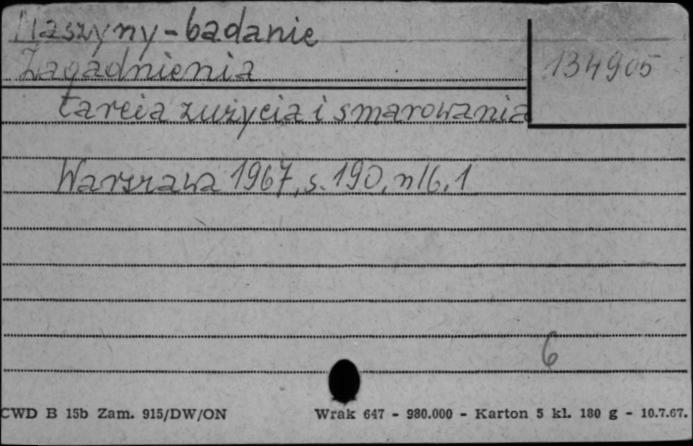 Maszyny - badanie
Zagadnienia
134905
tarcia zużycia i smarowania
Warszawa 1967, s. 190, nlb. 1
6
CWD B 15b Zam. 915/DW/ON
Wrak 647 - 980.000 - Karton 5 kl. 180 g - 10.7.67.